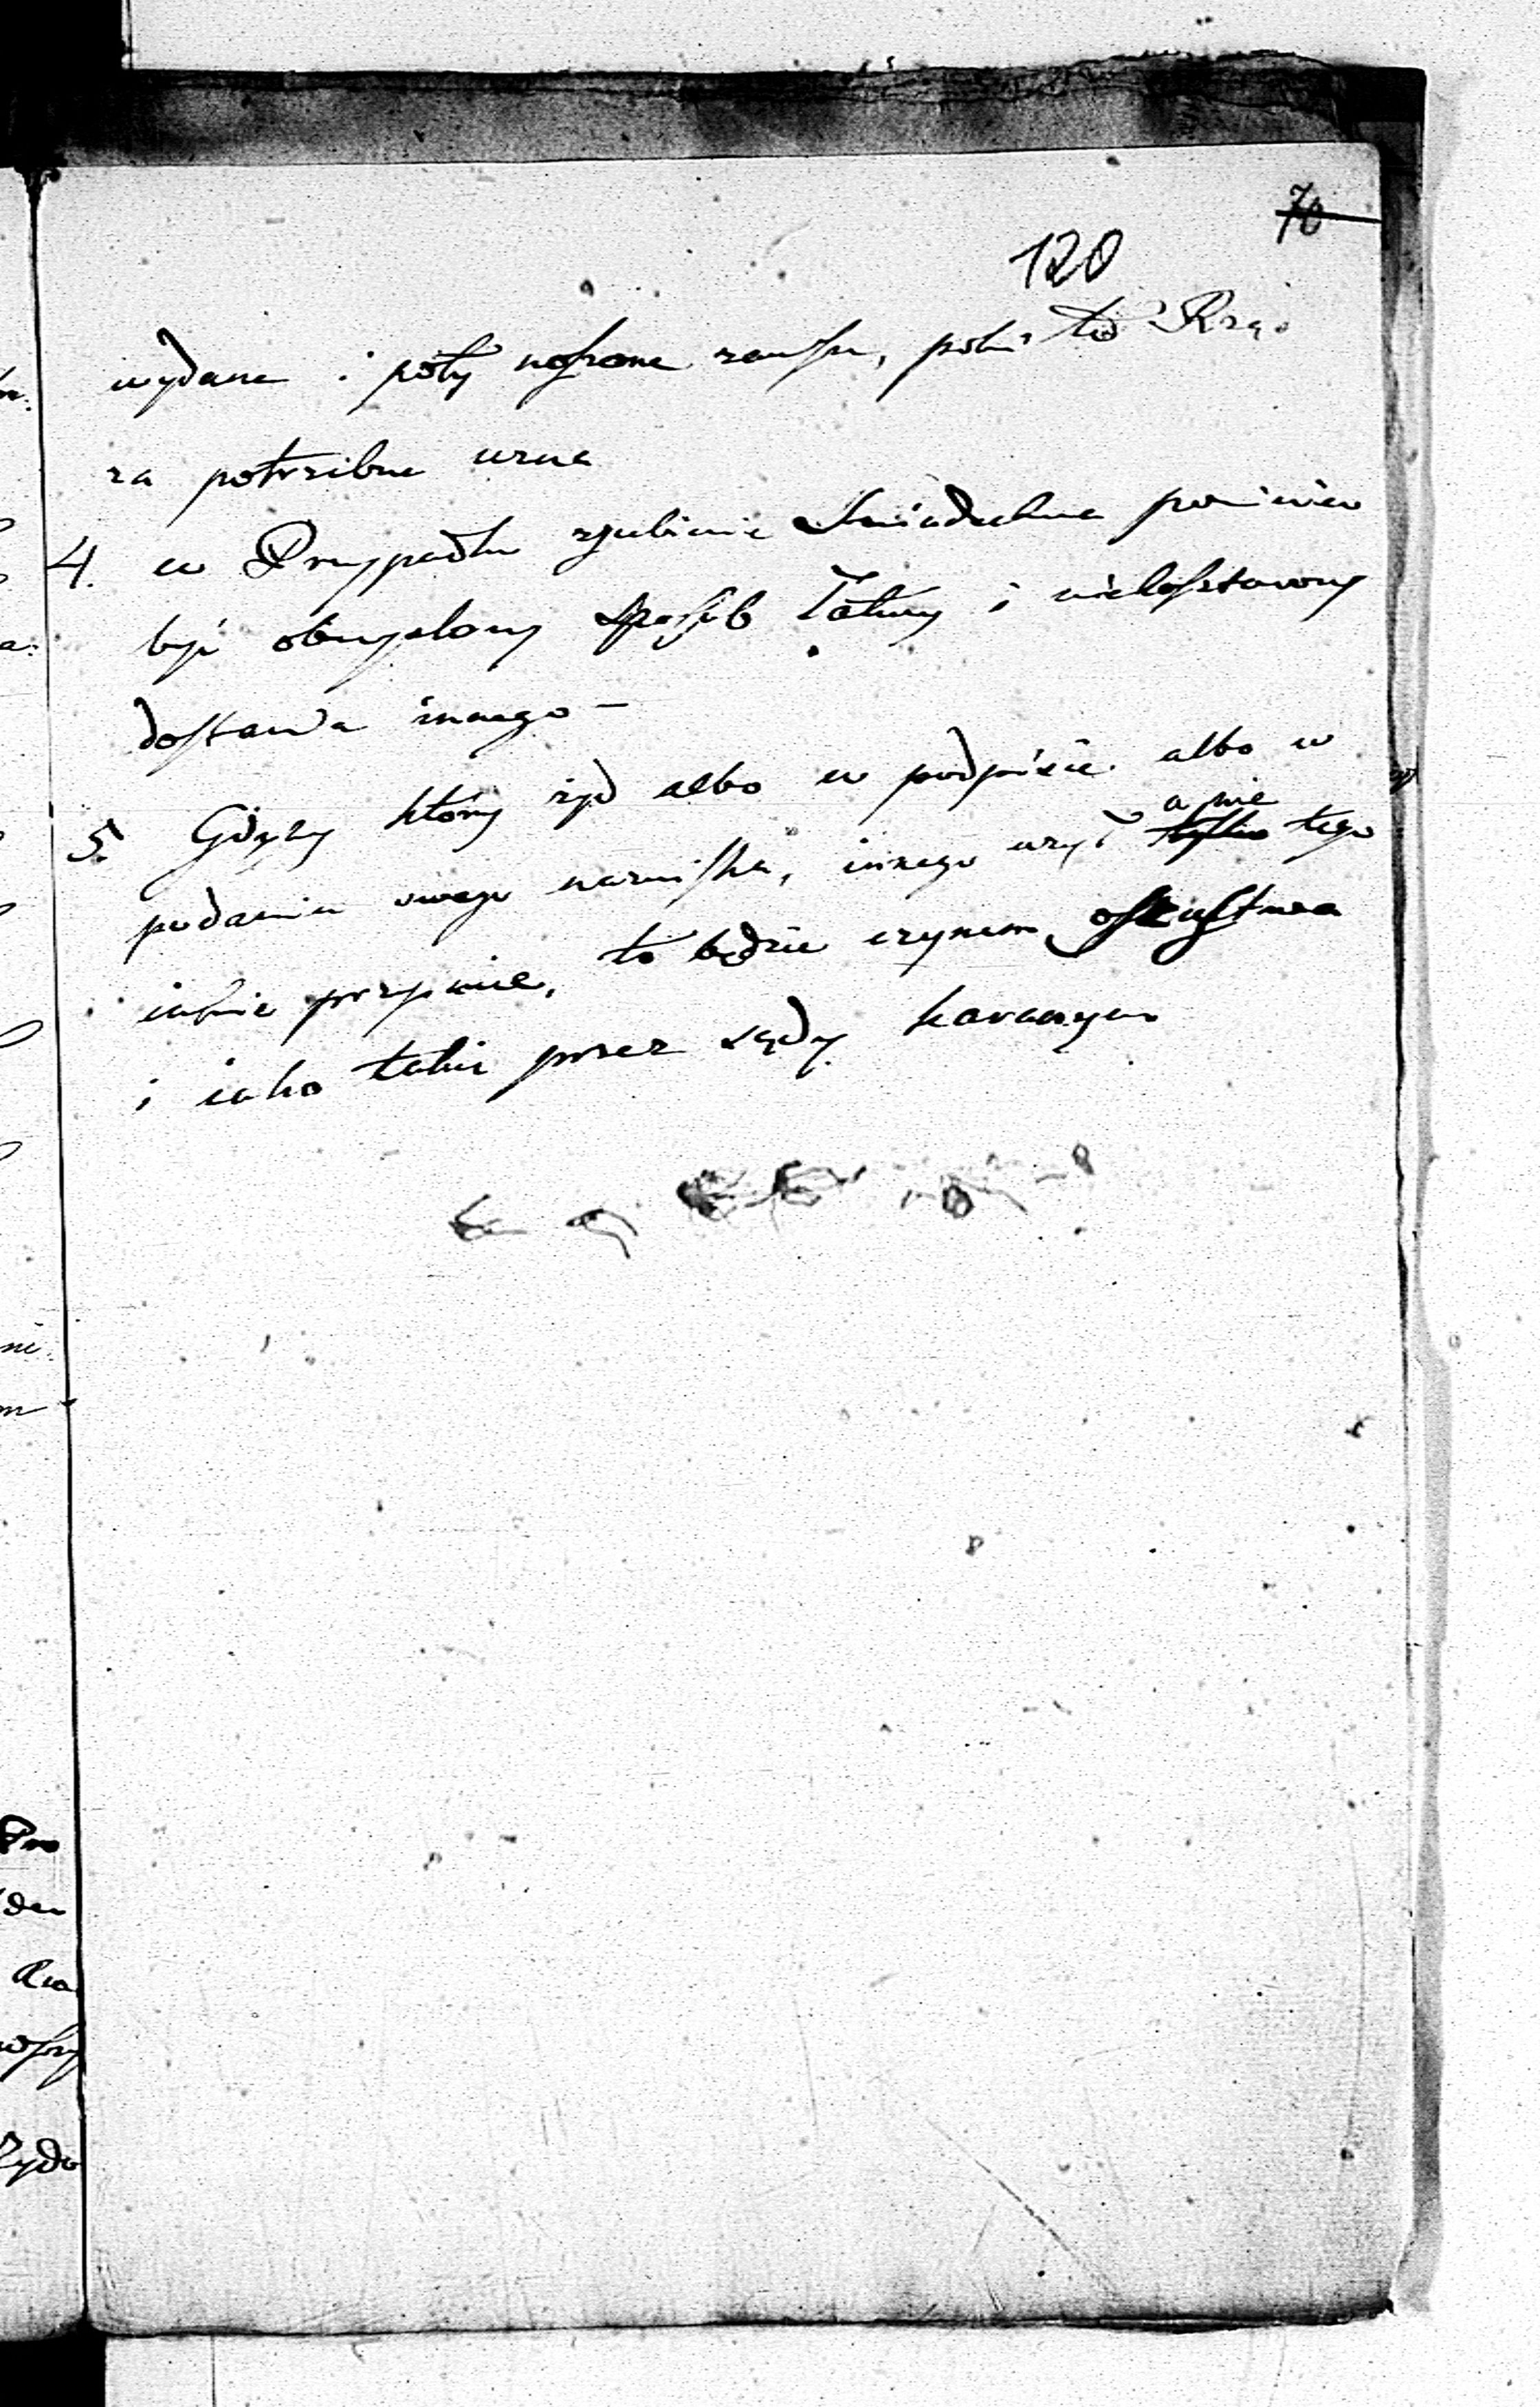 70
120
wydane i poty noszone zawsze, poki to Rząd
za potrzebne uzna
4. w Przypadku zgubienia Swiadectwa powinien
być obmyślony sposób łatwy i niekosztowny
dostania innego —
5. Gdyby który żyd albo w podpisie albo w
podaniu swego nazwiska, innego użył a nie tego
iakie przyimie, to będzie czynem oszustwa
i iako takie przez sądy karanym